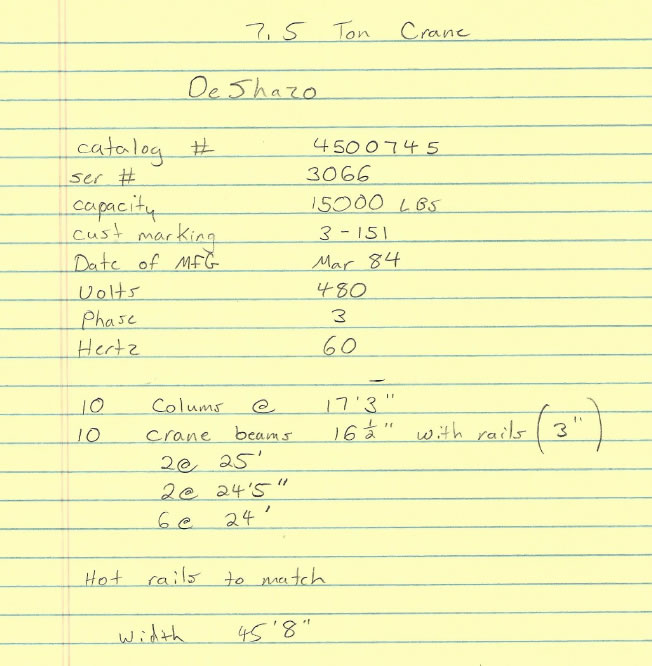 7.5 Ton Crane
DeShazo
catalog # 4500745
ser # 3066
capacity 15000 LBS
cust marking 3-151
Date of MFG Mar 84
Volts 480
Phase 3
Hertz 60
10 Colums @ 17'3"
10 crane beams 16½" with rails (3")
2@ 25'
2@ 24'5"
6@ 24'
Hot rails to match
width 45'8"